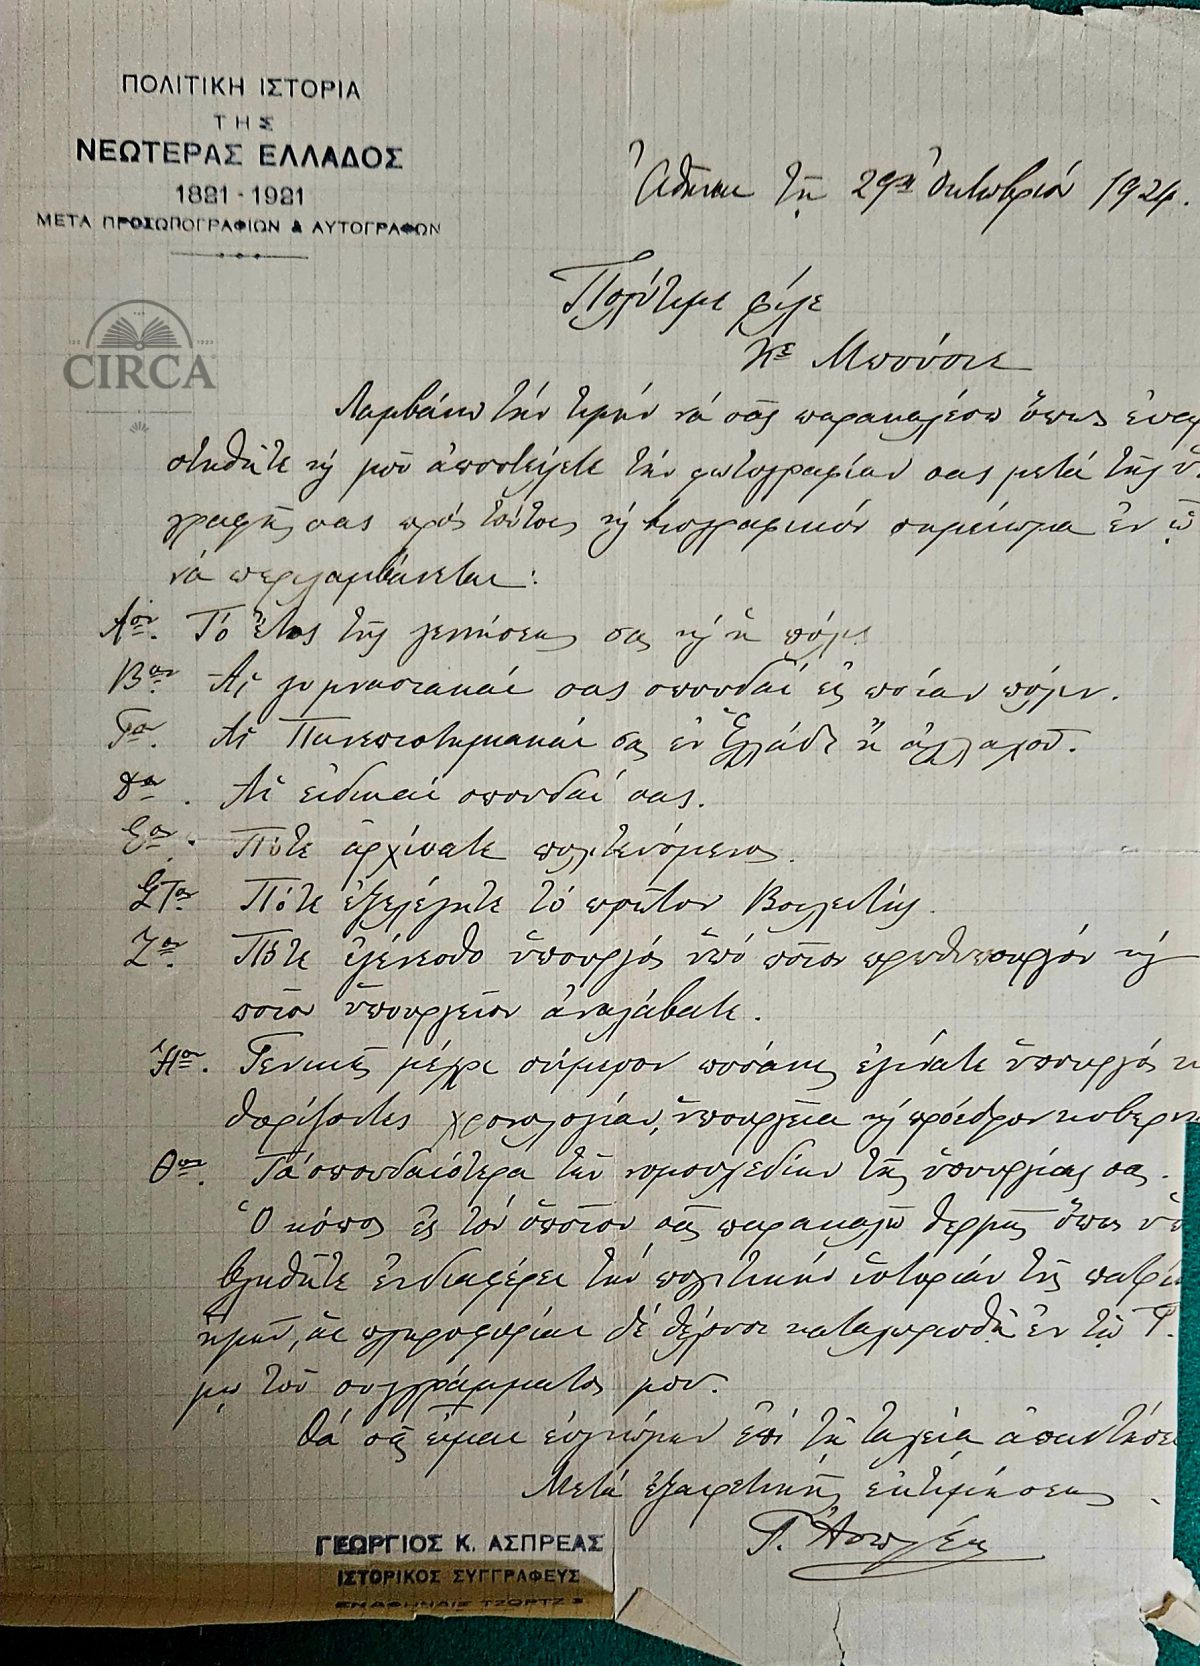 ΠΟΛΙΤΙΚΗ ΙΣΤΟΡΙΑ
ΤΗΣ
ΝΕΩΤΕΡΑΣ ΕΛΛΑΔΟΣ
1821 - 1921
ΜΕΤΑ ΠΡΟΣΩΠΟΓΡΑΦΙΩΝ & ΑΥΤΟΓΡΑΦΩΝ
Ἀθῆναι τῇ 29ῃ Ὀκτωβρίου 1924.
CIRCA
Πολύτιμε φίλε
Κε Μπούσιε
Λαμβάνω τὴν τιμὴν νὰ σᾶς παρακαλέσω ὅπως εὐαρ
στηθῆτε κ μοῦ ἀποστείλετε τὴν φωτογραφίαν σας μετὰ τῆς ὑ
γραφῆς σας πρὸς τούτοις κ βιογραφικὸν σημείωμα ἐν ᾧ
νὰ περιλαμβάνεται:
Αον. Τὸ ἔτος τῆς γεννήσεως σας κ ἡ πόλις
Βον. Αἱ γυμνασιακαί σας σπουδαί εἰς ποίαν πόλιν.
Γον. Αἱ Πανεπιστημιακαί σας ἐν Ἑλλάδι ἢ ἀλλαχοῦ.
Δον. Αἱ εἰδικαί σπουδαί σας.
Εον. Πότε ἀρχίσατε πολιτευόμενος.
ΣΤον. Πότε ἐξελέγητε τὸ πρῶτον Βουλευτής.
Ζον. Πότε ἐγένεσθε ὑπουργός ὑπό ποῖον πρωθυπουργόν κ
ποῖον ὑπουργεῖον ἀναλάβατε.
Ηον. Γενικῶς μέχρι σήμερον ποσάκις ἐγίνατε ὑπουργός κ
θορίζοντες χρονολογίαν, ὑπουργεῖα κ πρόεδρον κυβερν
Θον. Τὰ σπουδαιότερα τῶν νομοσχεδίων τῆς ὑπουργίας σας.
Ὁ κόπος εἰς τὸν ὁποῖον σᾶς παρακαλῶ θερμῶς ὅπως ὑπο
βληθῆτε ἐνδιαφέρει τὴν πολιτικὴν ἱστορίαν τῆς πατρί
ἡμῶν, αἱ πληροφορίαι δέ θέλουσι καταχωρισθῇ ἐν τῷ Γ.
μῳ τοῦ συγγράμματος μου.
Θά σᾶς εἶμαι εὐγνώμων ἐπί τῇ ταχείᾳ ἀπαντήσει
Μετά ἐξαιρετικῆς ἐκτιμήσεως
Γ. Ἀσπρέας
ΓΕΩΡΓΙΟΣ Κ. ΑΣΠΡΕΑΣ
ΙΣΤΟΡΙΚΟΣ ΣΥΓΓΡΑΦΕΥΣ
ΕΝ ΑΘΗΝΑΙΣ ΤΖΩΡΤΖ